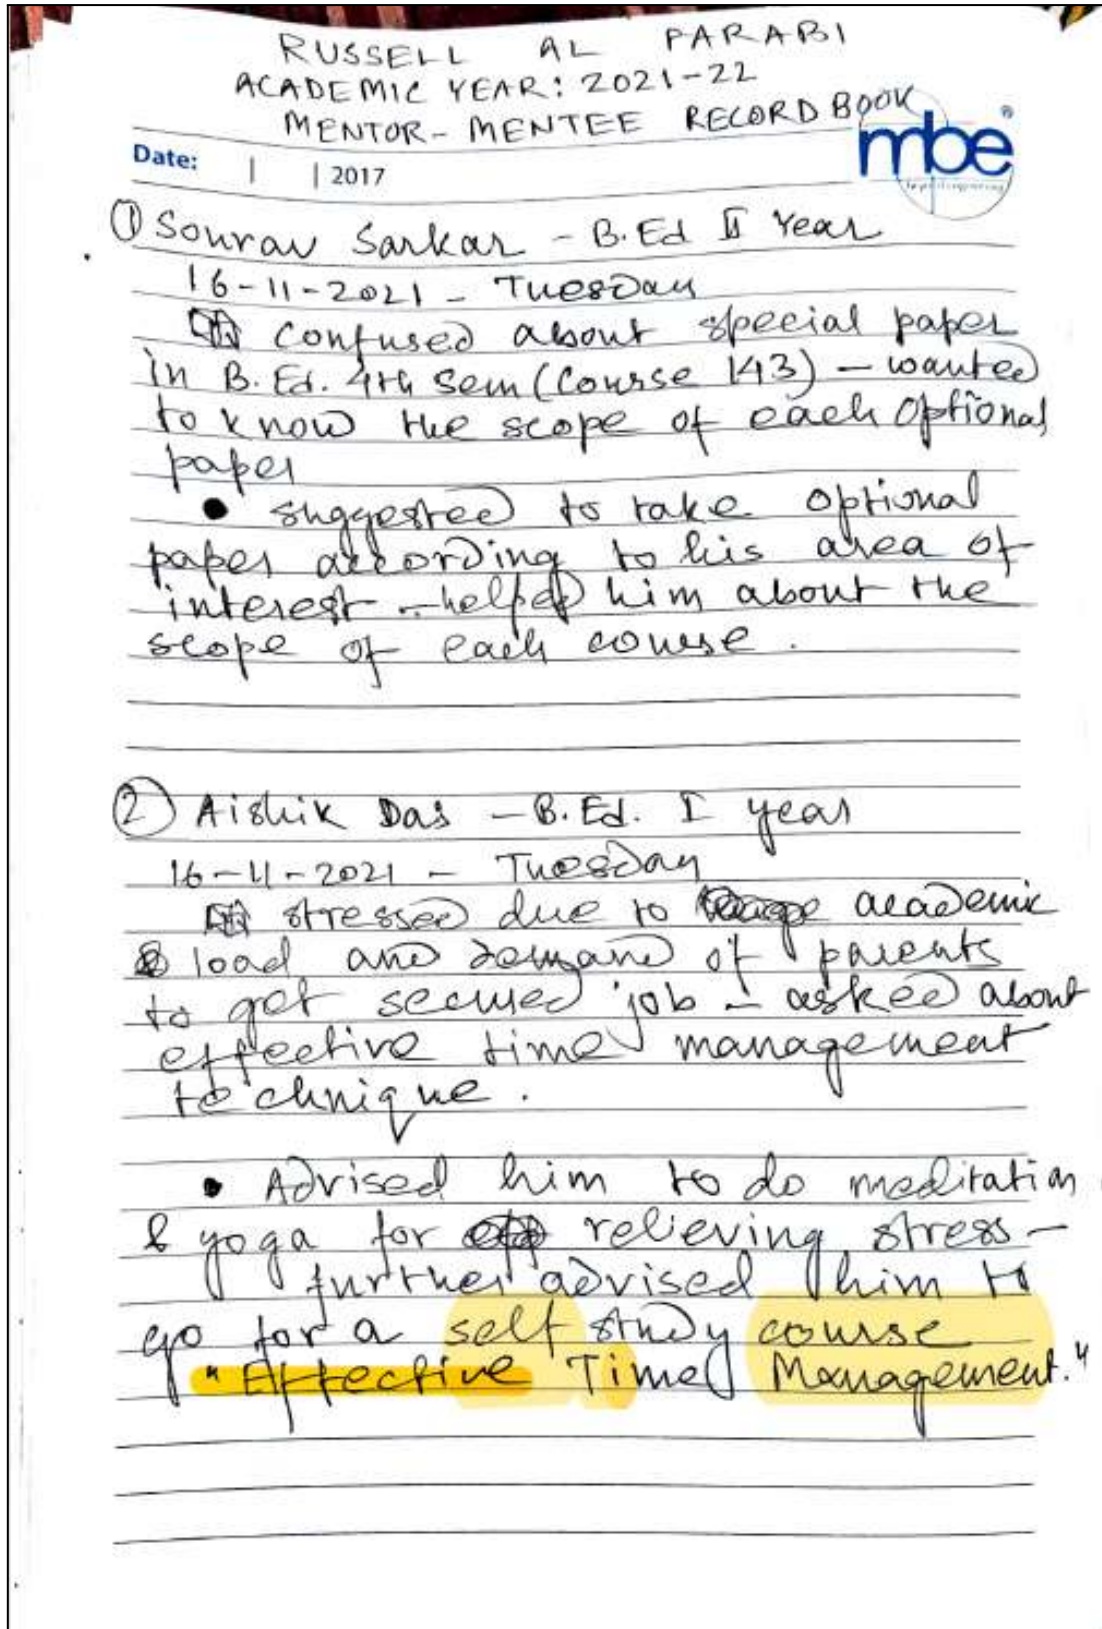 RUSSELL AL FARABI
ACADEMIC YEAR: 2021-22
MENTOR-MENTEE RECORD BOOK
mbe
Date: | | 2017
① Sourav Sarkar - B.Ed II Year
16-11-2021 - Tuesday
confused about special paper
in B.Ed. 4th Sem (Course 143) - wanted
to know the scope of each optional
paper
• suggested to take optional
paper according to his area of
interest - helped him about the
scope of each course.
② Aishik Das - B.Ed. I year
16-11-2021 - Tuesday
stressed due to academic
load and demand of parents
to get secured job - asked about
effective time management
technique.
• Advised him to do meditation
& yoga for relieving stress -
further advised him to
go for a self study course
"Effective Time Management."